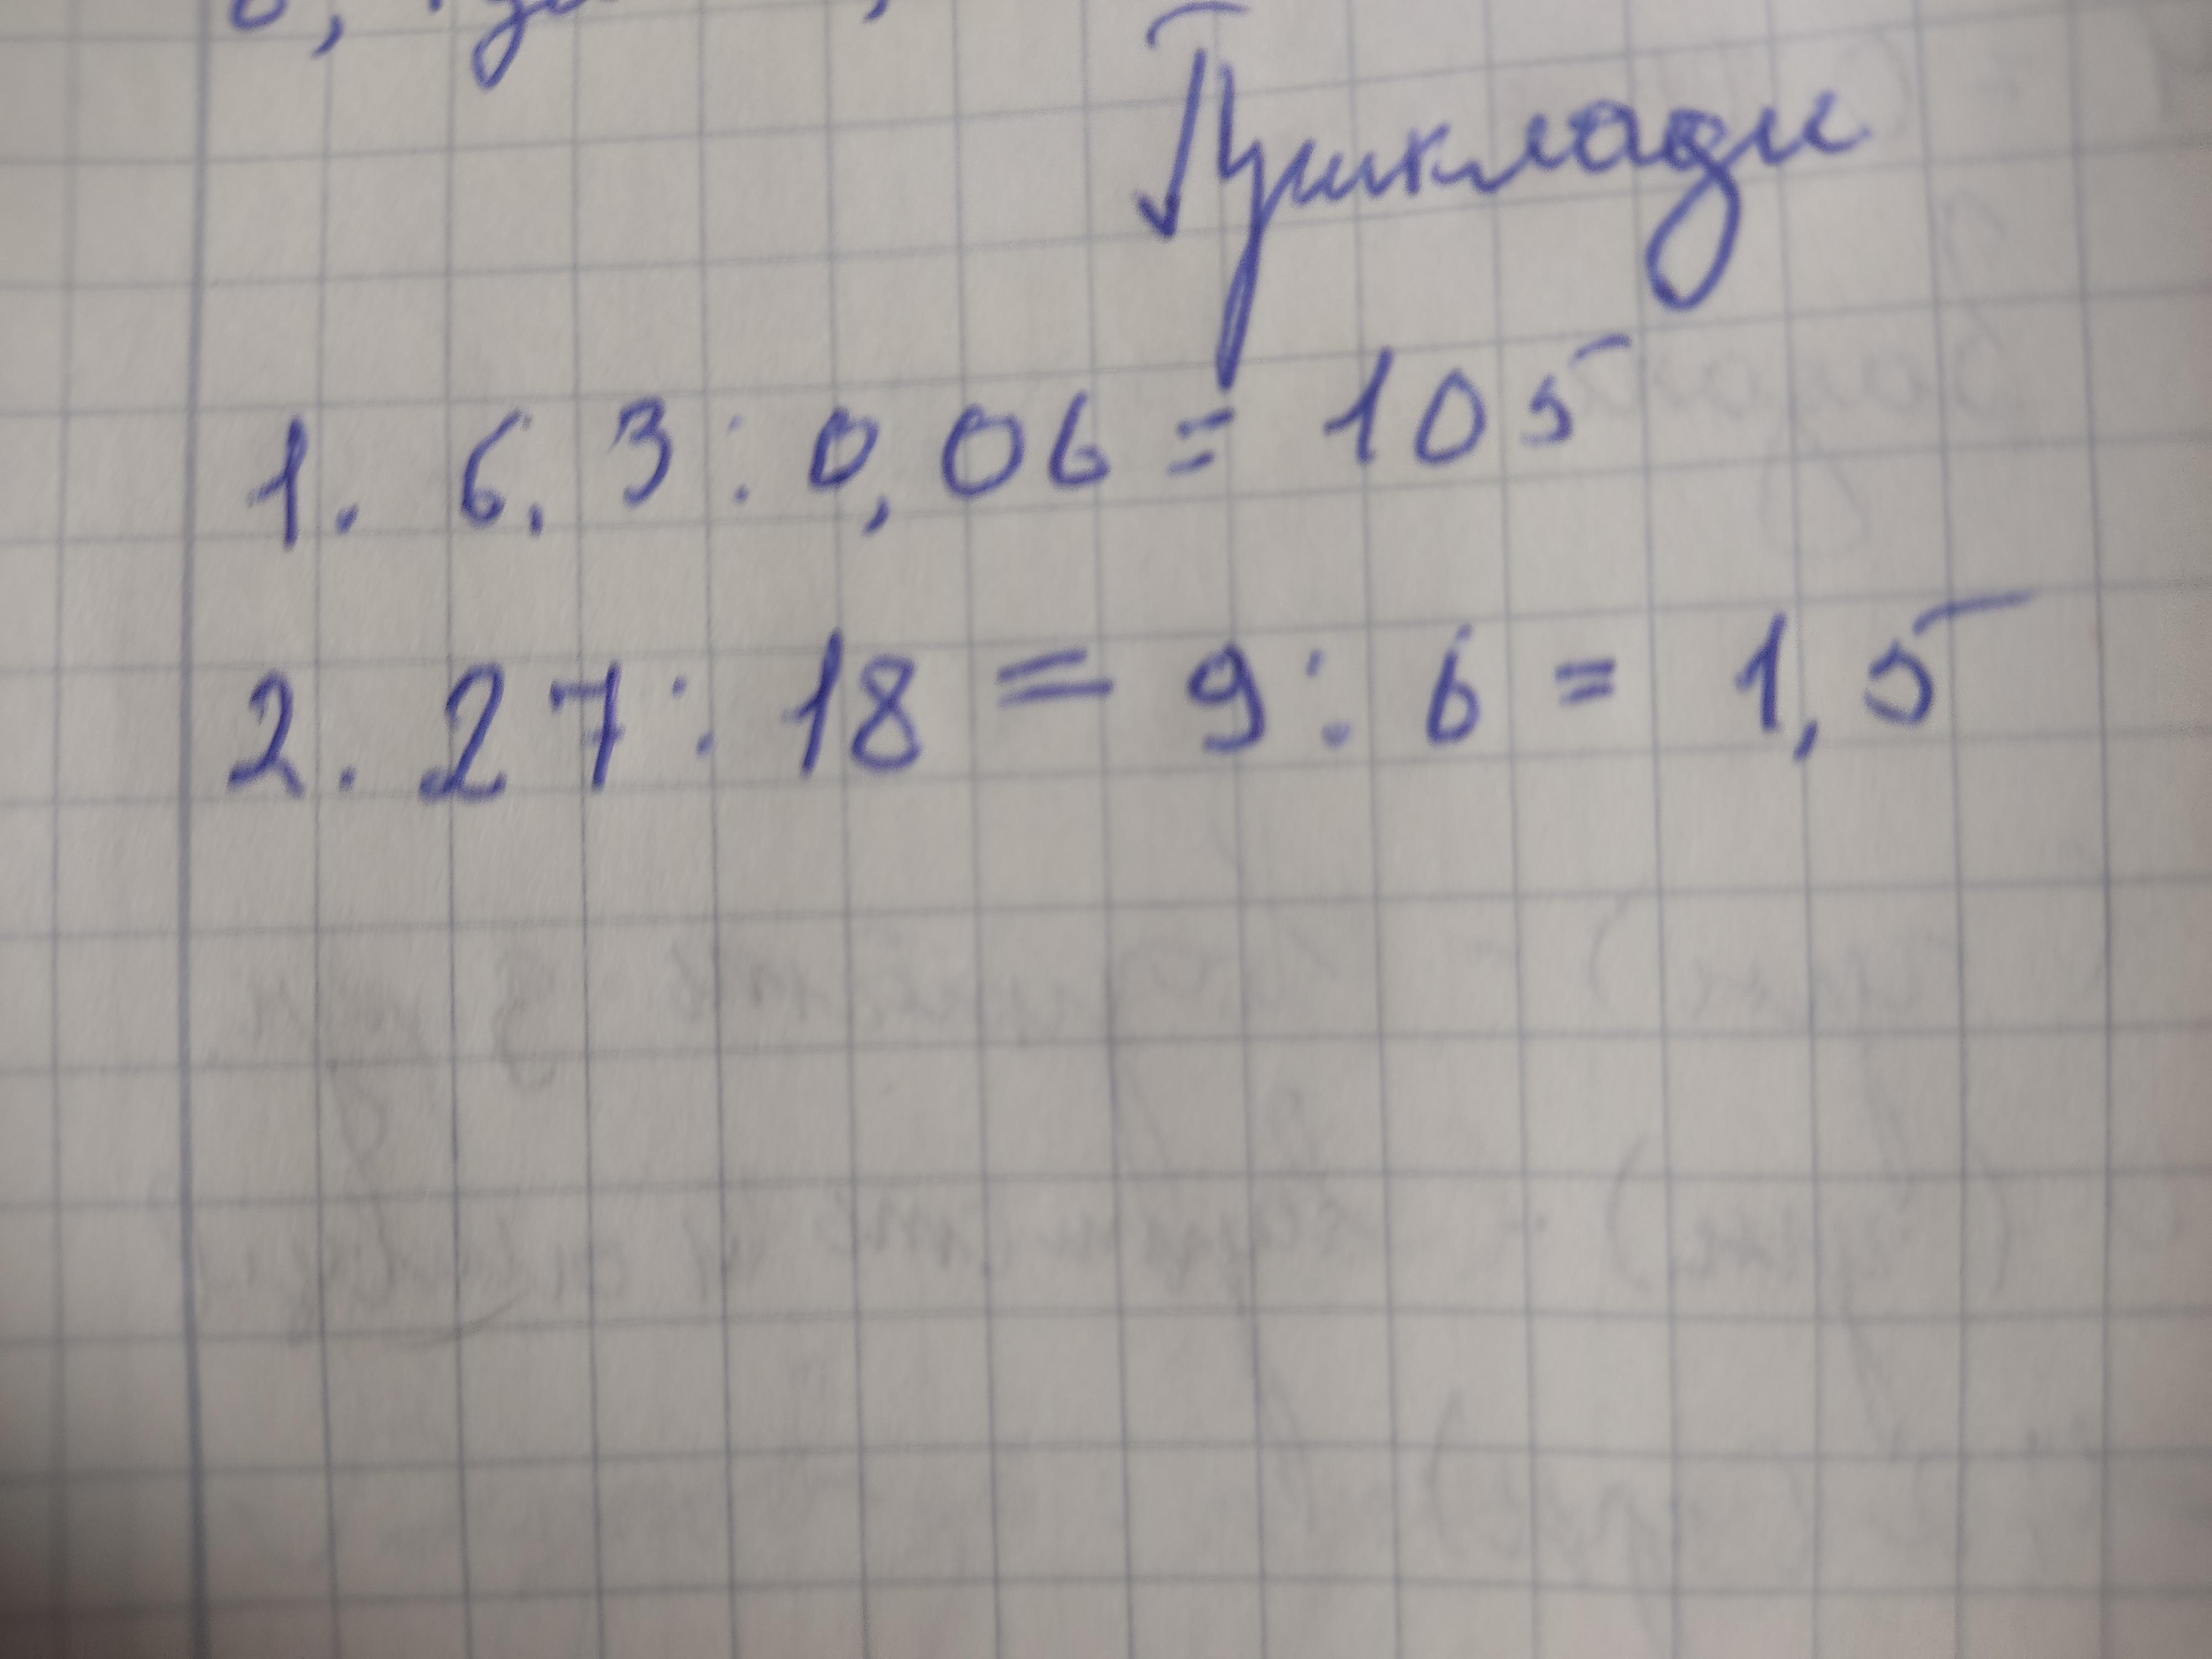 Приклади
1. 6,3 : 0,06 = 105
2. 27 : 18 = 9 : 6 = 1,5